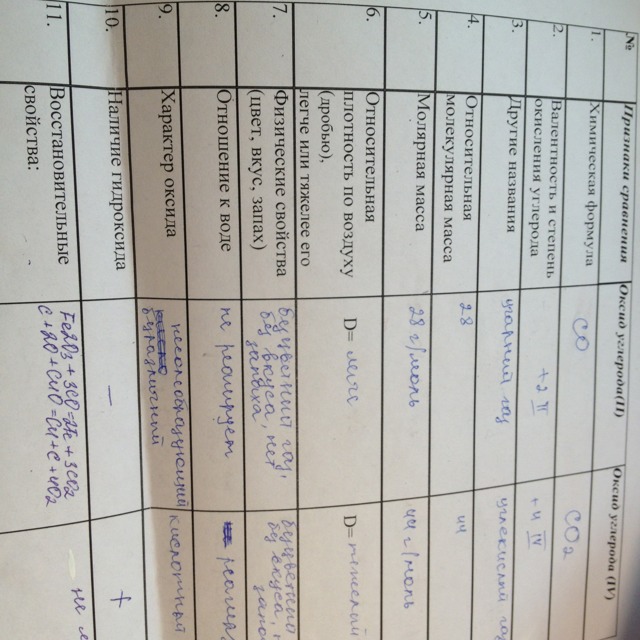 № Признаки сравнения Оксид углерода(II) Оксид углерода (IV)
1. Химическая формула CO CO2
2. Валентность и степень
окисления углерода +2 II +4 IV
3. Другие названия угарный газ углекислый
4. Относительная
молекулярная масса 28 44
5. Молярная масса 28 г/моль 44 г/моль
6. Относительная
плотность по воздуху
(дробью),
легче или тяжелее его D= легче D=
7. Физические свойства
(цвет, вкус, запах)
бесцветный газ,
без вкуса, нет
запаха
без вкуса,
8. Отношение к воде не реагирует
9. Характер оксида
несолеобразующий
10. Наличие гидроксида – +
11. Восстановительные
свойства:
Fe2O3 + 3CO = 2Fe + 3CO2
не